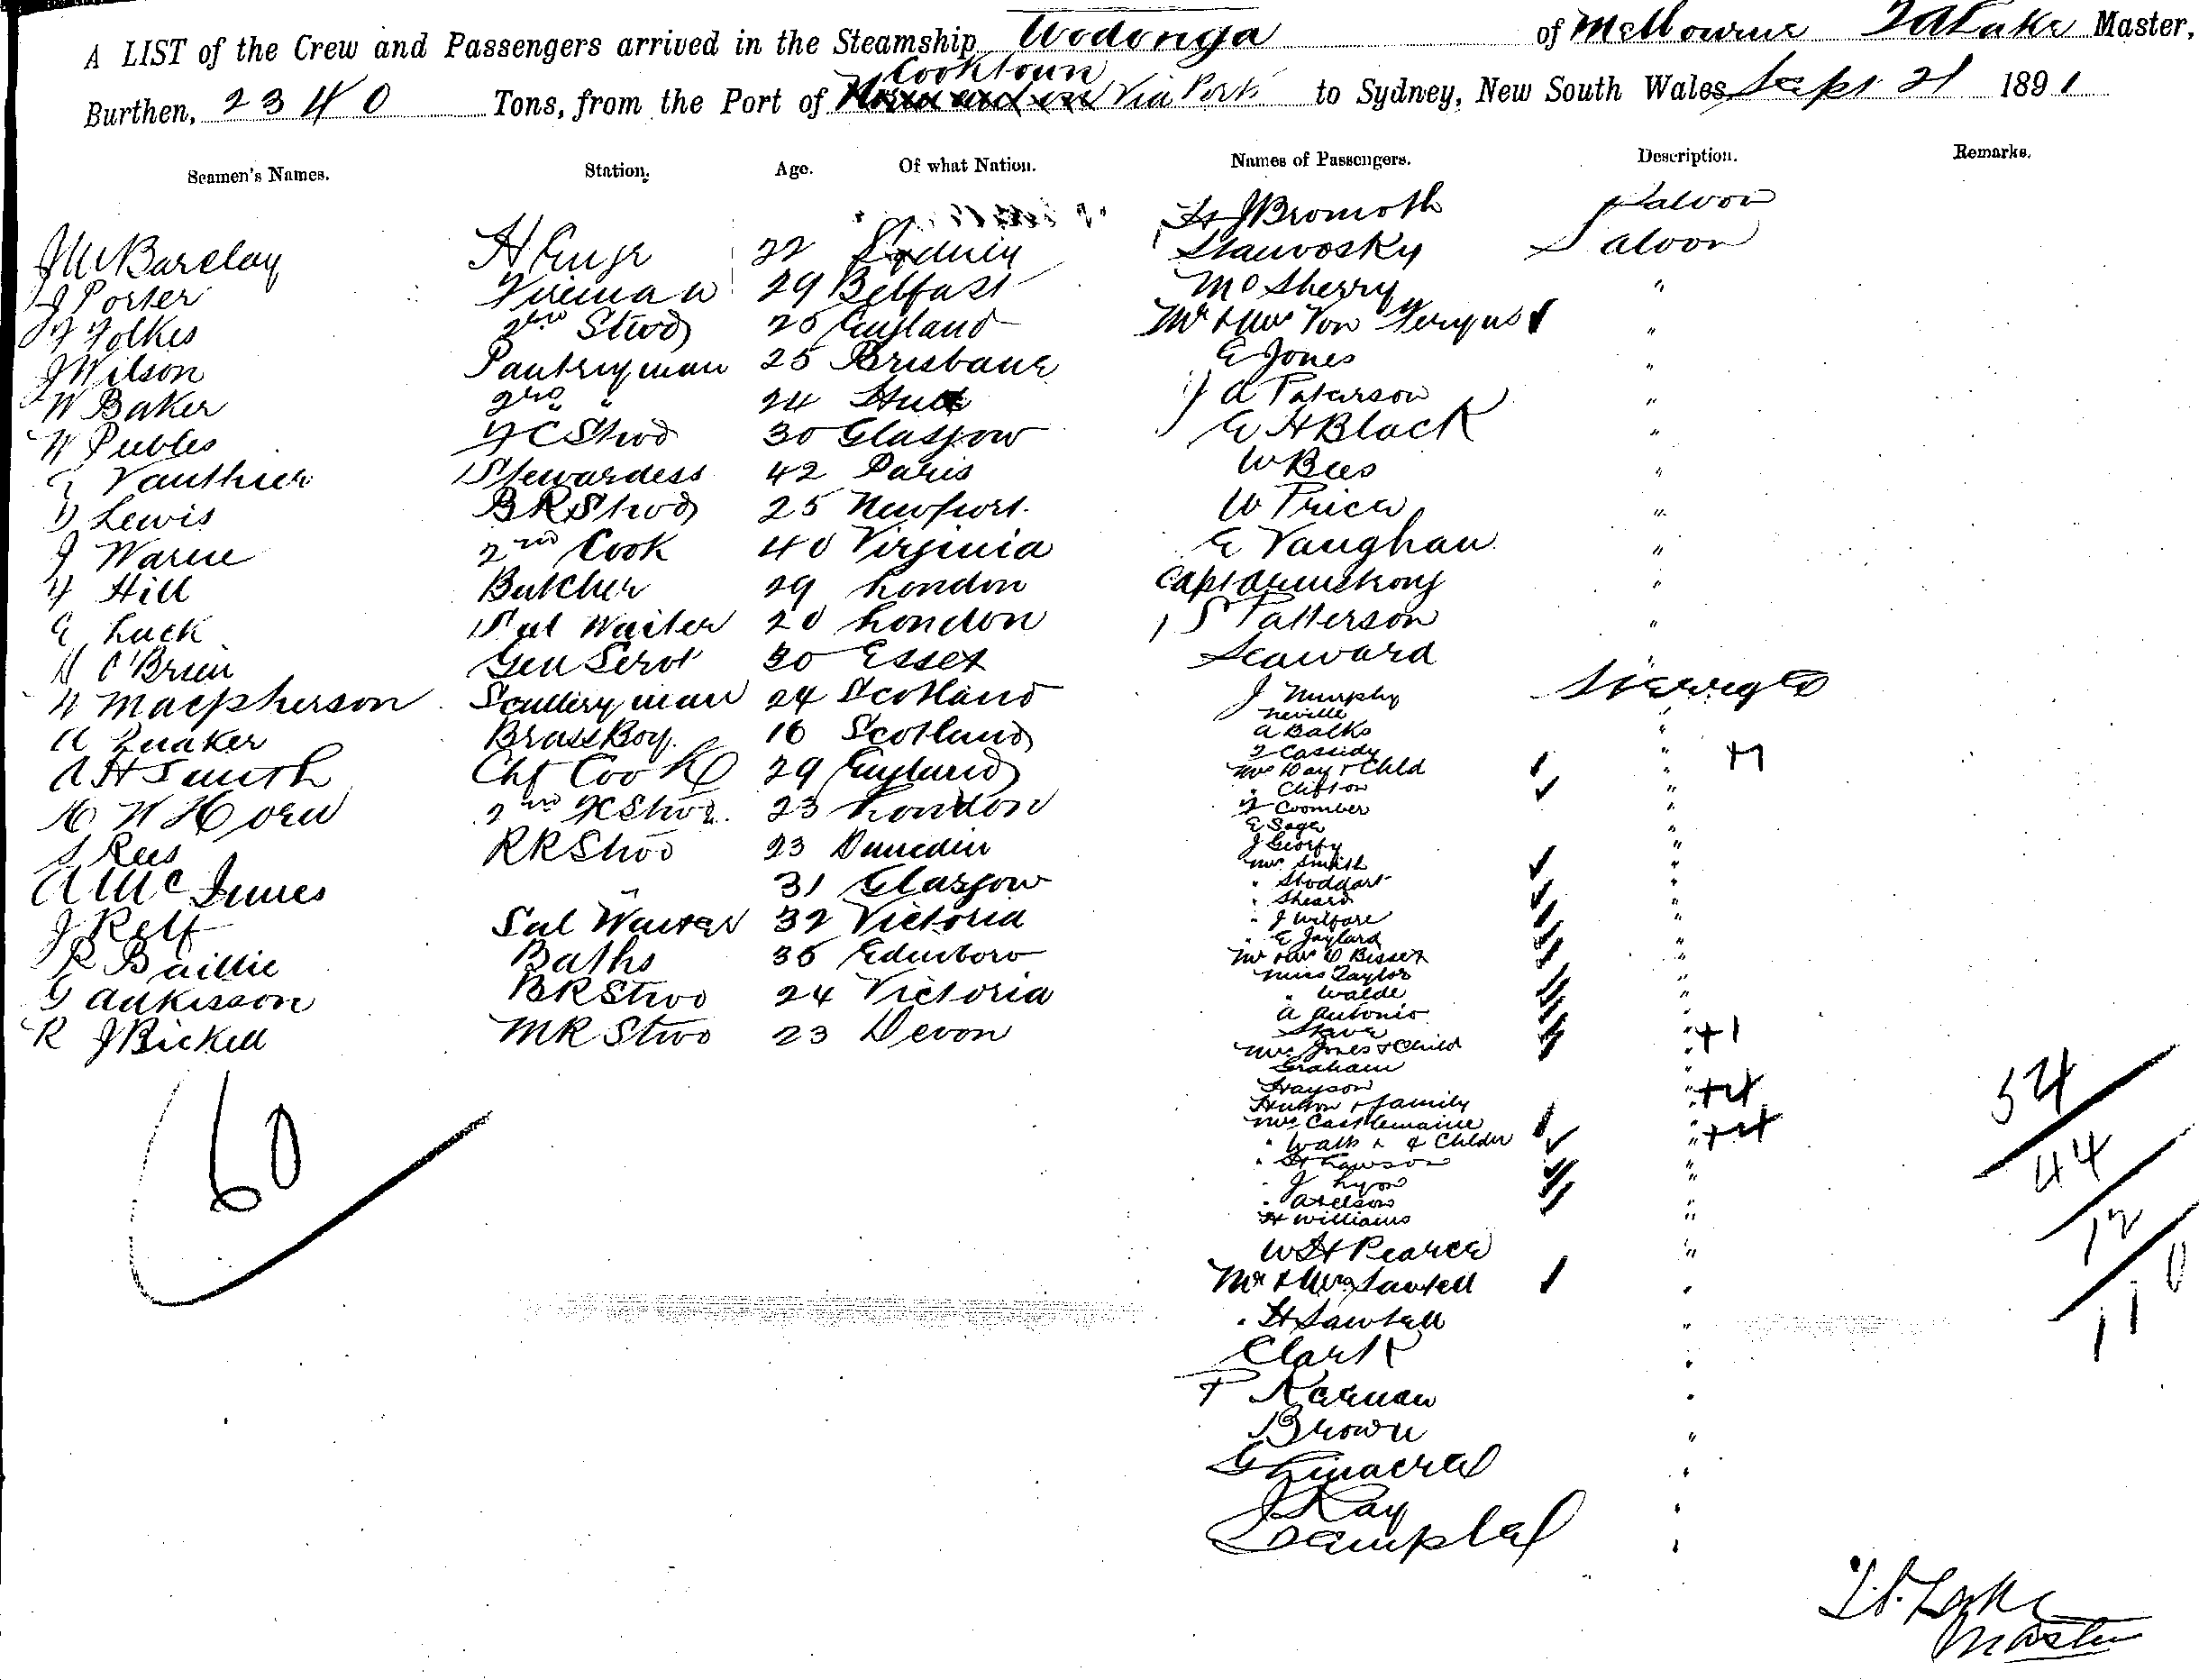 A LIST of the Crew and Passengers arrived in the Steamship Wodonga of Melbourne Lake Master,
Cooktown
Burthen, 2340 Tons, from the Port of Via Ports to Sydney, New South Wales Sept 21 1891
Seamen's Names. Station. Age. Of what Nation. Names of Passengers. Description. Remarks.
H J Bromoth Saloon
J Barclay 22 Sydney Stanvosky Saloon
J Porter Fireman 29 Belfast McSherry "
F Folkes 2nd Stwd England Mr & Mrs Von "
J Wilson Pantryman 25 Brisbane E Jones "
W Baker 2nd " 24 J A Paterson "
W Peebles FC Stwd 30 Glasgow E H Black "
Vauthier Stewardess 42 Paris W Bees "
D Lewis BR Stwd 25 Newport W Price "
J Warne 2nd Cook 40 Virginia E Vaughan "
Hill Butcher 29 London Capt Armstrong "
E Luck Sal Waiter 20 London S Patterson "
H O'Brien Gen Servt 30 Essex Seaward "
Macpherson Sculleryman 24 Scotland J Murphy Steerage
Neville "
A Quaker Brass Boy 16 Scotland A Balks "
Cassidy "
A H Smith Chf Cook 29 England Mrs Day & Chld "
" Clifton "
W Horn 2nd FC Stwd 23 London F Coomber "
E Sage "
S Rees RR Stwd 23 Dunedin J "
Mrs Smith "
A McInnes " 31 Glasgow " Stoddart "
" Sheard "
J Relf Sal Waiter 32 Victoria " J Welfare "
" E Jaylard "
R Baillie Baths 35 Edinboro Mr & Mrs Bisset "
Miss Taylor "
G Ankisson BR Stwd 24 Victoria " Walde "
A Antonio "
R J Bickell MR Stwd 23 Devon
Mrs Jones & Child " +1
Graham "
Hayson " +4
& family
Mrs Castlemaine " +4
" 4 Childn
" H Lawson "
" J Lyon "
"
H Williams "
W H Pearce "
Mr & Mrs Sawtell "
" H Sawtell "
Clark "
P "
Brown "
G Linacre "
J Kay "
Campbel "
60
54
44
12
110
Lake
Master